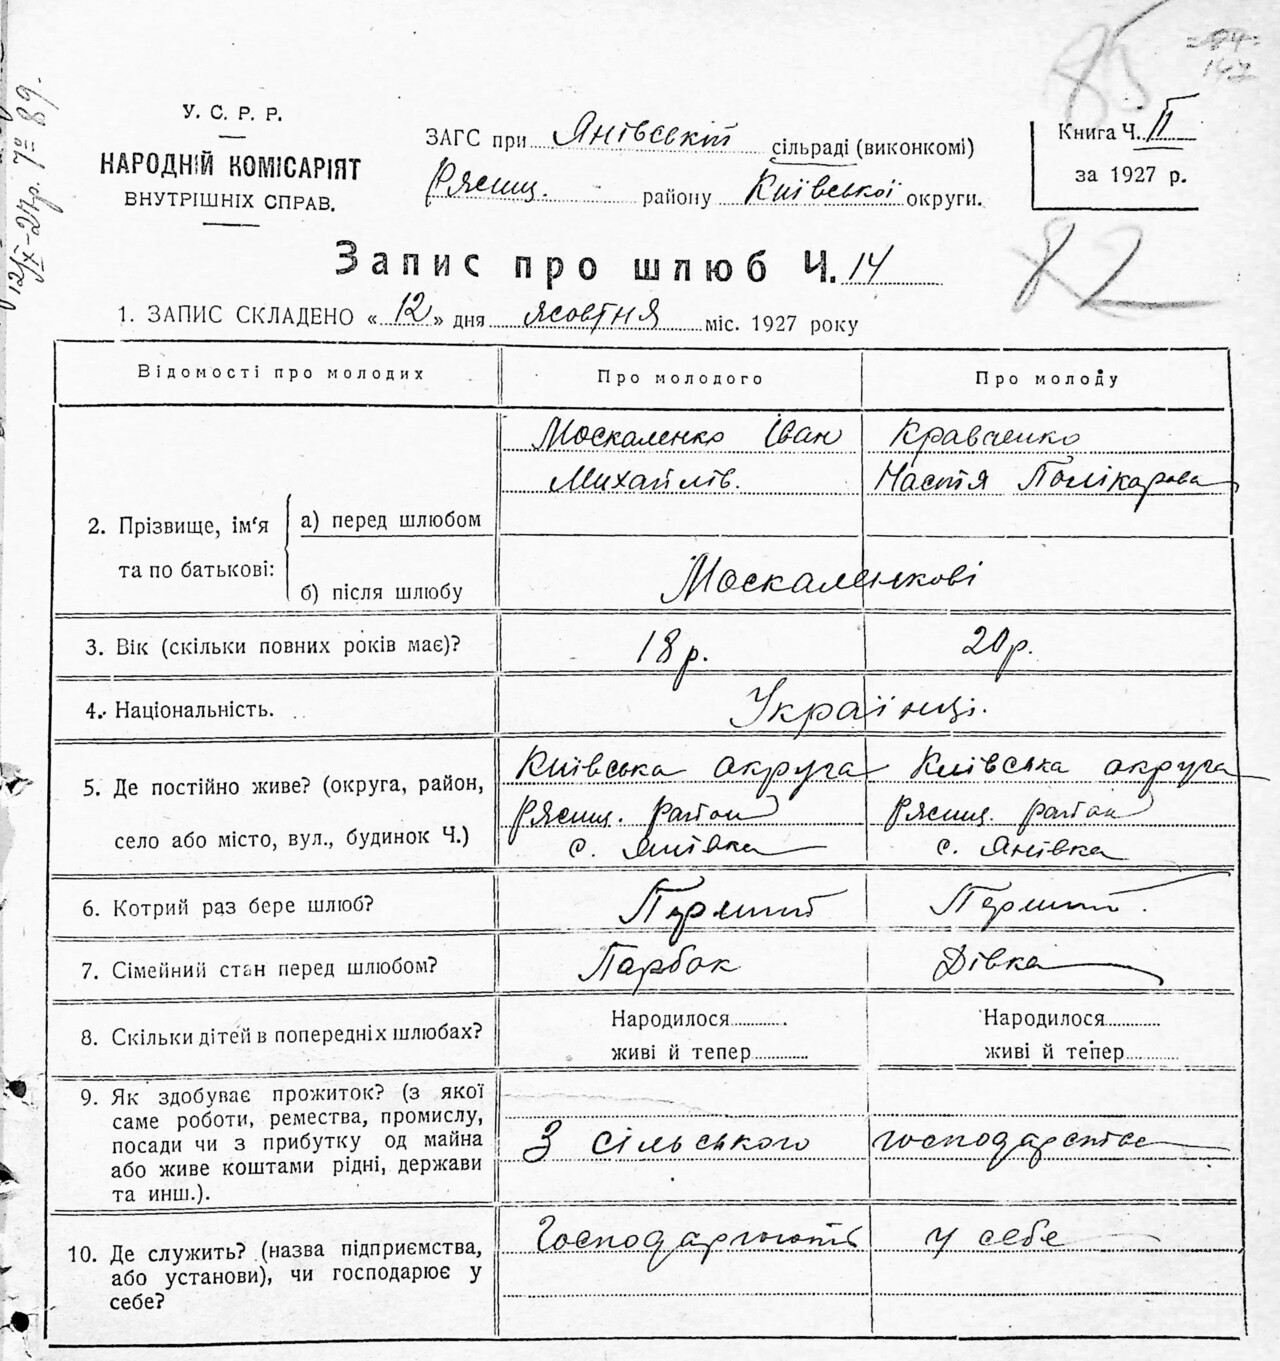 85
147
12/X-27р. № 89.
У. С. Р. Р.
НАРОДНІЙ КОМІСАРІЯТ
ВНУТРІШНІХ СПРАВ.
ЗАГС при Янівській сільраді (виконкомі)
Рясниц. району Київської округи.
Книга Ч. II
за 1927 р.
82
Запис про шлюб Ч. 14
1. ЗАПИС СКЛАДЕНО «12» дня жовтня міс. 1927 року
Відомості про молодих Про молодого Про молоду
Москаленко Іван Кравченко
Михайлів. Настя Полікарова
2. Прізвище, ім'я а) перед шлюбом
та по батькові:
б) після шлюбу Москаленкові
3. Вік (скільки повних років має)? 18 р. 20 р.
4. Національність. Українці.
Київська округа Київська округа
5. Де постійно живе? (округа, район, Рясниц. район Рясниц. район
село або місто, вул., будинок Ч.) с. Янівка с. Янівка
6. Котрий раз бере шлюб? Перший Перший.
7. Сімейний стан перед шлюбом? Парбок Дівка
8. Скільки дітей в попередніх шлюбах? Народилося Народилося
живі й тепер живі й тепер
9. Як здобуває прожиток? (з якої
саме роботи, ремества, промислу,
посади чи з прибутку од майна З сільського господарства
або живе коштами рідні, держави
та инш.).
Господарюють у себе
10. Де служить? (назва підприємства,
або установи), чи господарює у
себе?